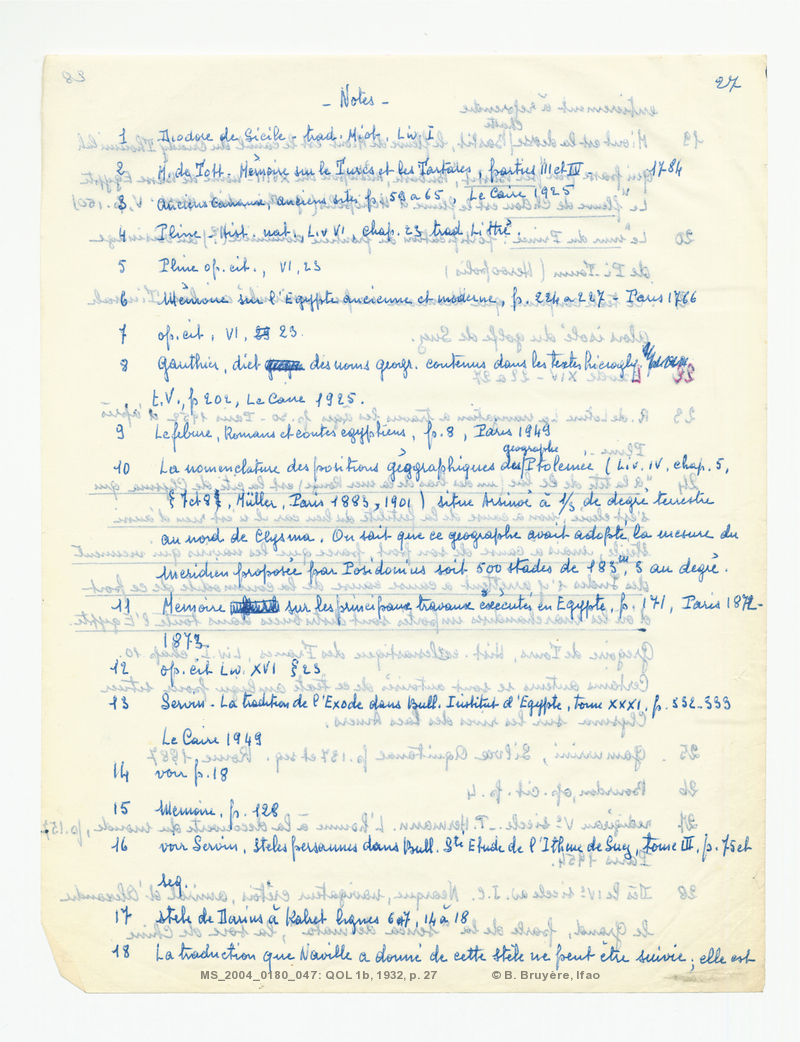 27
- Notes -
1 Diodore de Sicile - trad. Miot, Liv. I
2 M. de Tott. Mémoire sur le Turcs et les Tartares, parties III et IV 1784
3 anciens canaux, anciens sites p. 59 a 65, Le Caire 1925
4 Pline, Hist. nat. Liv VI, chap. 23 trad. Littré.
5 Pline op. cit., VI, 23
6 Mémoire sur l'Egypte ancienne et moderne, p. 224 a 227 - Paris 1766
7 op. cit, VI, 23.
8 Gauthier, dict des noms geogr. contenus dans les textes hierogly.
t. V., p 202, Le Caire 1925.
9 Lefebure, Romans et contes egyptiens, p. 8, Paris 1949
geographe
10 La nomenclature des positions géographiques de Ptolemée (Liv. IV, chap. 5,
§ 7 et 8, Müller, Paris 1883, 1901) situe Arsinoé à 1/3 de degré terrestre
au nord de Clysma. On sait que ce geographe avait adopté la mesure du
meridien proposée par Posidonius soit 500 stades de 183m, 3 au degré.
11 Memoire sur les principaux travaux éxécutés en Egypte, p. 171, Paris 1872-
1873.
12 op. cit Liv. XVI § 23
13 Servin - La tradition de l'Exode dans Bull. Institut d'Egypte, tome XXXI, p. 332-333
Le Caire 1949
14 voir p. 18
15 Memoire, p. 128
16 voir Servin, steles persannes dans Bull. Sté Etude de l'Isthme de Suez, Tome III, p. 75 et
seq.
17 stele de Darius à Kabret lignes 6 et 7, 14 à 18
18 La traduction que Naville a donné de cette stele ne peut être suivie; elle est
MS_2004_0180_047: QOL 1b, 1932, p. 27 © B. Bruyère, Ifao